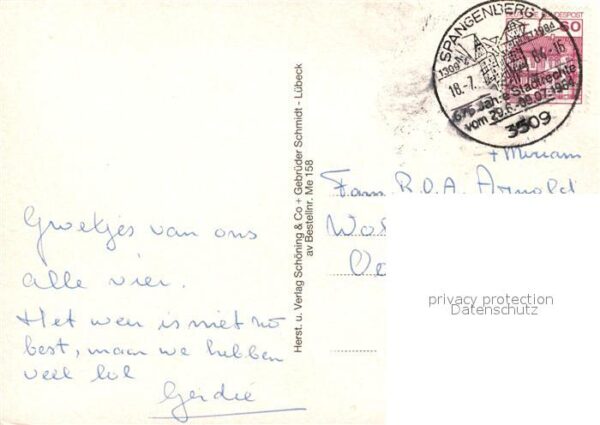 Groetjes van ons
alle vier.
Het weer is niet zo
best, maar we hebben
veel lol
Gerdie
Herst. u. Verlag Schöning & Co + Gebrüder Schmidt - Lübeck
av Bestellnr. Me 158
SPANGENBERG
BUNDESPOST
60
1309
1984
18.-7.
84-16
675 Jahre Stadtrechte
vom 29.6.-09.07.1984
3509
+ Miriam
Fam. R.O.A. Arnold
privacy protection
Datenschutz